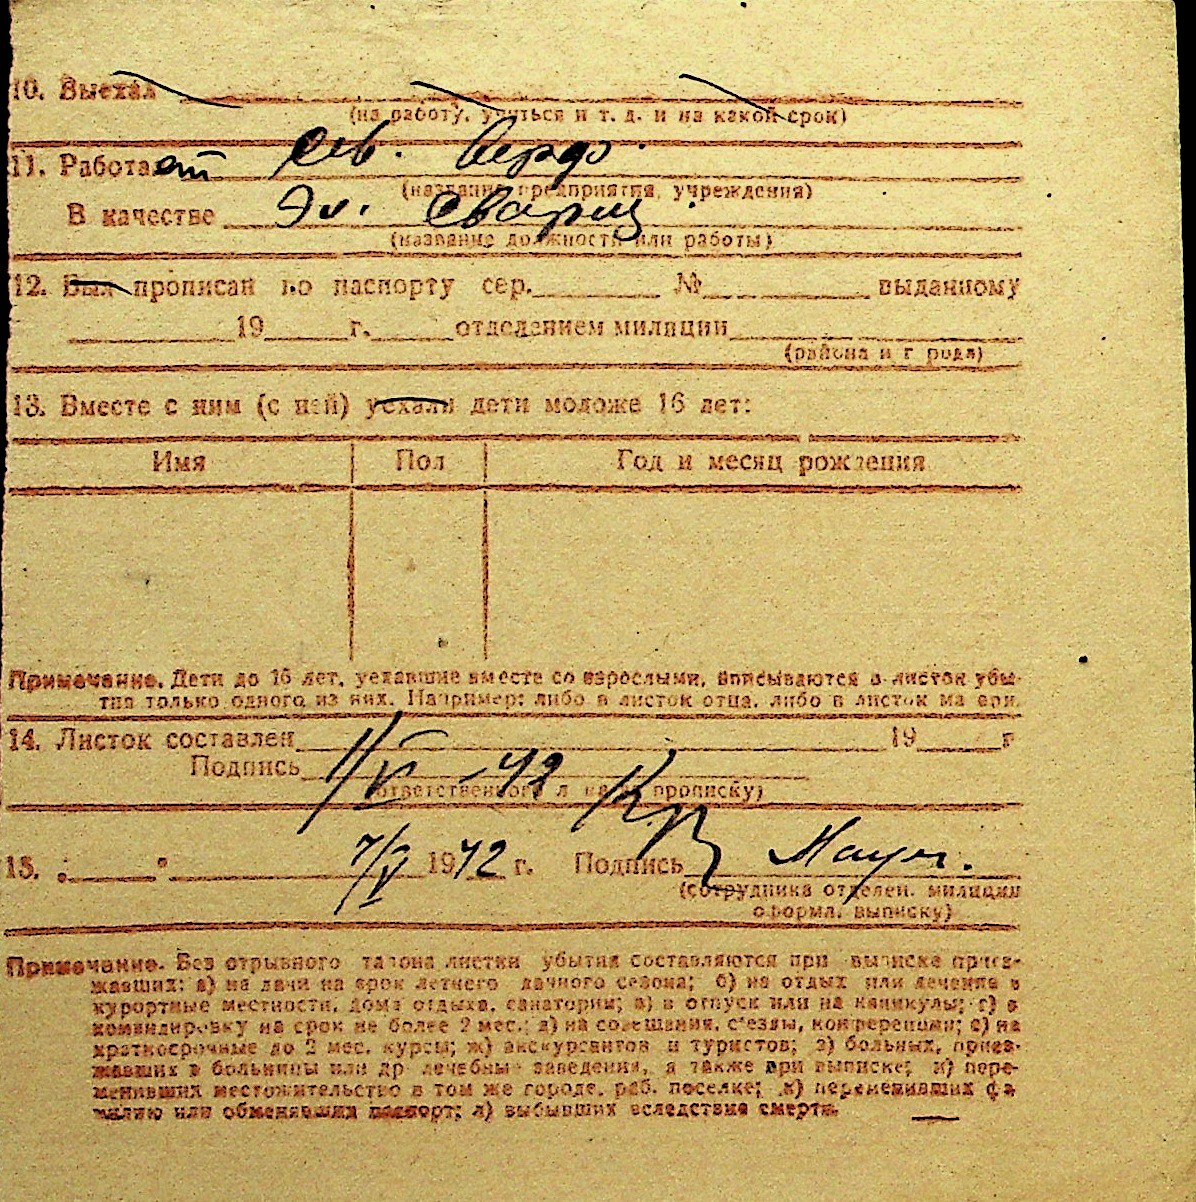 10. Выехал
(на работу, учиться и т. д. и на какой срок)
11. Работает
(название предприятия, учреждения)
В качестве Эл. сварщ.
(название должности или работы)
12. Был прописан по паспорту сер. № выданному
19 г. отделением милиции
(района и города)
13. Вместе с ним (с ней) уехали дети моложе 16 лет:
Имя Пол Год и месяц рождения
Примечание. Дети до 16 лет, уехавшие вместе со взрослыми, вписываются в листок убы-
тия только одного из них. Например: либо в листок отца, либо в листок матери.
14. Листок составлен 19 г
1/V - 42
Подпись
(ответственного лица за прописку)
15. „ " 7/V 1942 г. Подпись
(сотрудника отделен. милиции
оформл. выписку)
Примечание. Без отрывного талона листки убытия составляются при выписке приез-
жавших: а) на дачи на срок летнего дачного сезона; б) на отдых или лечение в
курортные местности, дома отдыха, санатории; в) в отпуск или на каникулы; г) в
командировку на срок не более 2 мес.; д) на совещания, съезды, конференции; е) на
краткосрочные до 2 мес. курсы; ж) экскурсантов и туристов; з) больных, приез-
жавших в больницы или др лечебные заведения, а также при выписке; и) пере-
менивших местожительство в том же городе, раб. поселке; к) переменивших фа
милию или обменявших паспорт; л) выбывших вследствие смерти.